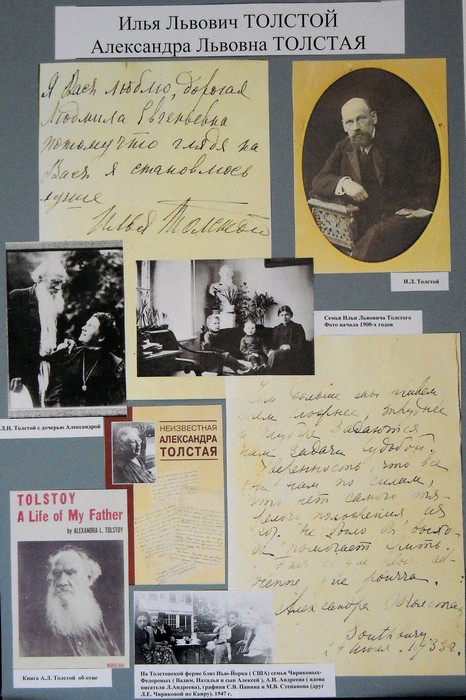 Илья Львович ТОЛСТОЙ
Александра Львовна ТОЛСТАЯ
Я Васъ люблю, дорогая
Людмила Евгеньевна
потому что глядя на
Васъ я становлюсь
лучше
Илья Толстой
И.Л. Толстой
Семья Ильи Львовича Толстого
Фото начала 1900-х годов
Л.Н. Толстой с дочерью Александрой
НЕИЗВЕСТНАЯ
АЛЕКСАНДРА
ТОЛСТАЯ
TOLSTOY
A Life of My Father
by ALEXANDRA L. TOLSTOY
Чем больше мы живем
тем труднее
и глубже задаются
нам задачи судьбой.
Уверенность, что все
нам по силам,
что нет самого тя-
желого положения из
не было бы выхо-
помогает жить.
Александра Толстая
1933 г.
Книга А.Л. Толстой об отце
На Толстовской ферме близ Нью-Йорка ( США) семья Чириковых-
Федоровых ( Вадим, Наталья и сын Алексей ), А.И. Андреева ( вдова
писателя Л.Андреева), графиня С.В. Панина и М.В. Степанова (друг
Л.Е. Чириковой по Каиру). 1947 г.